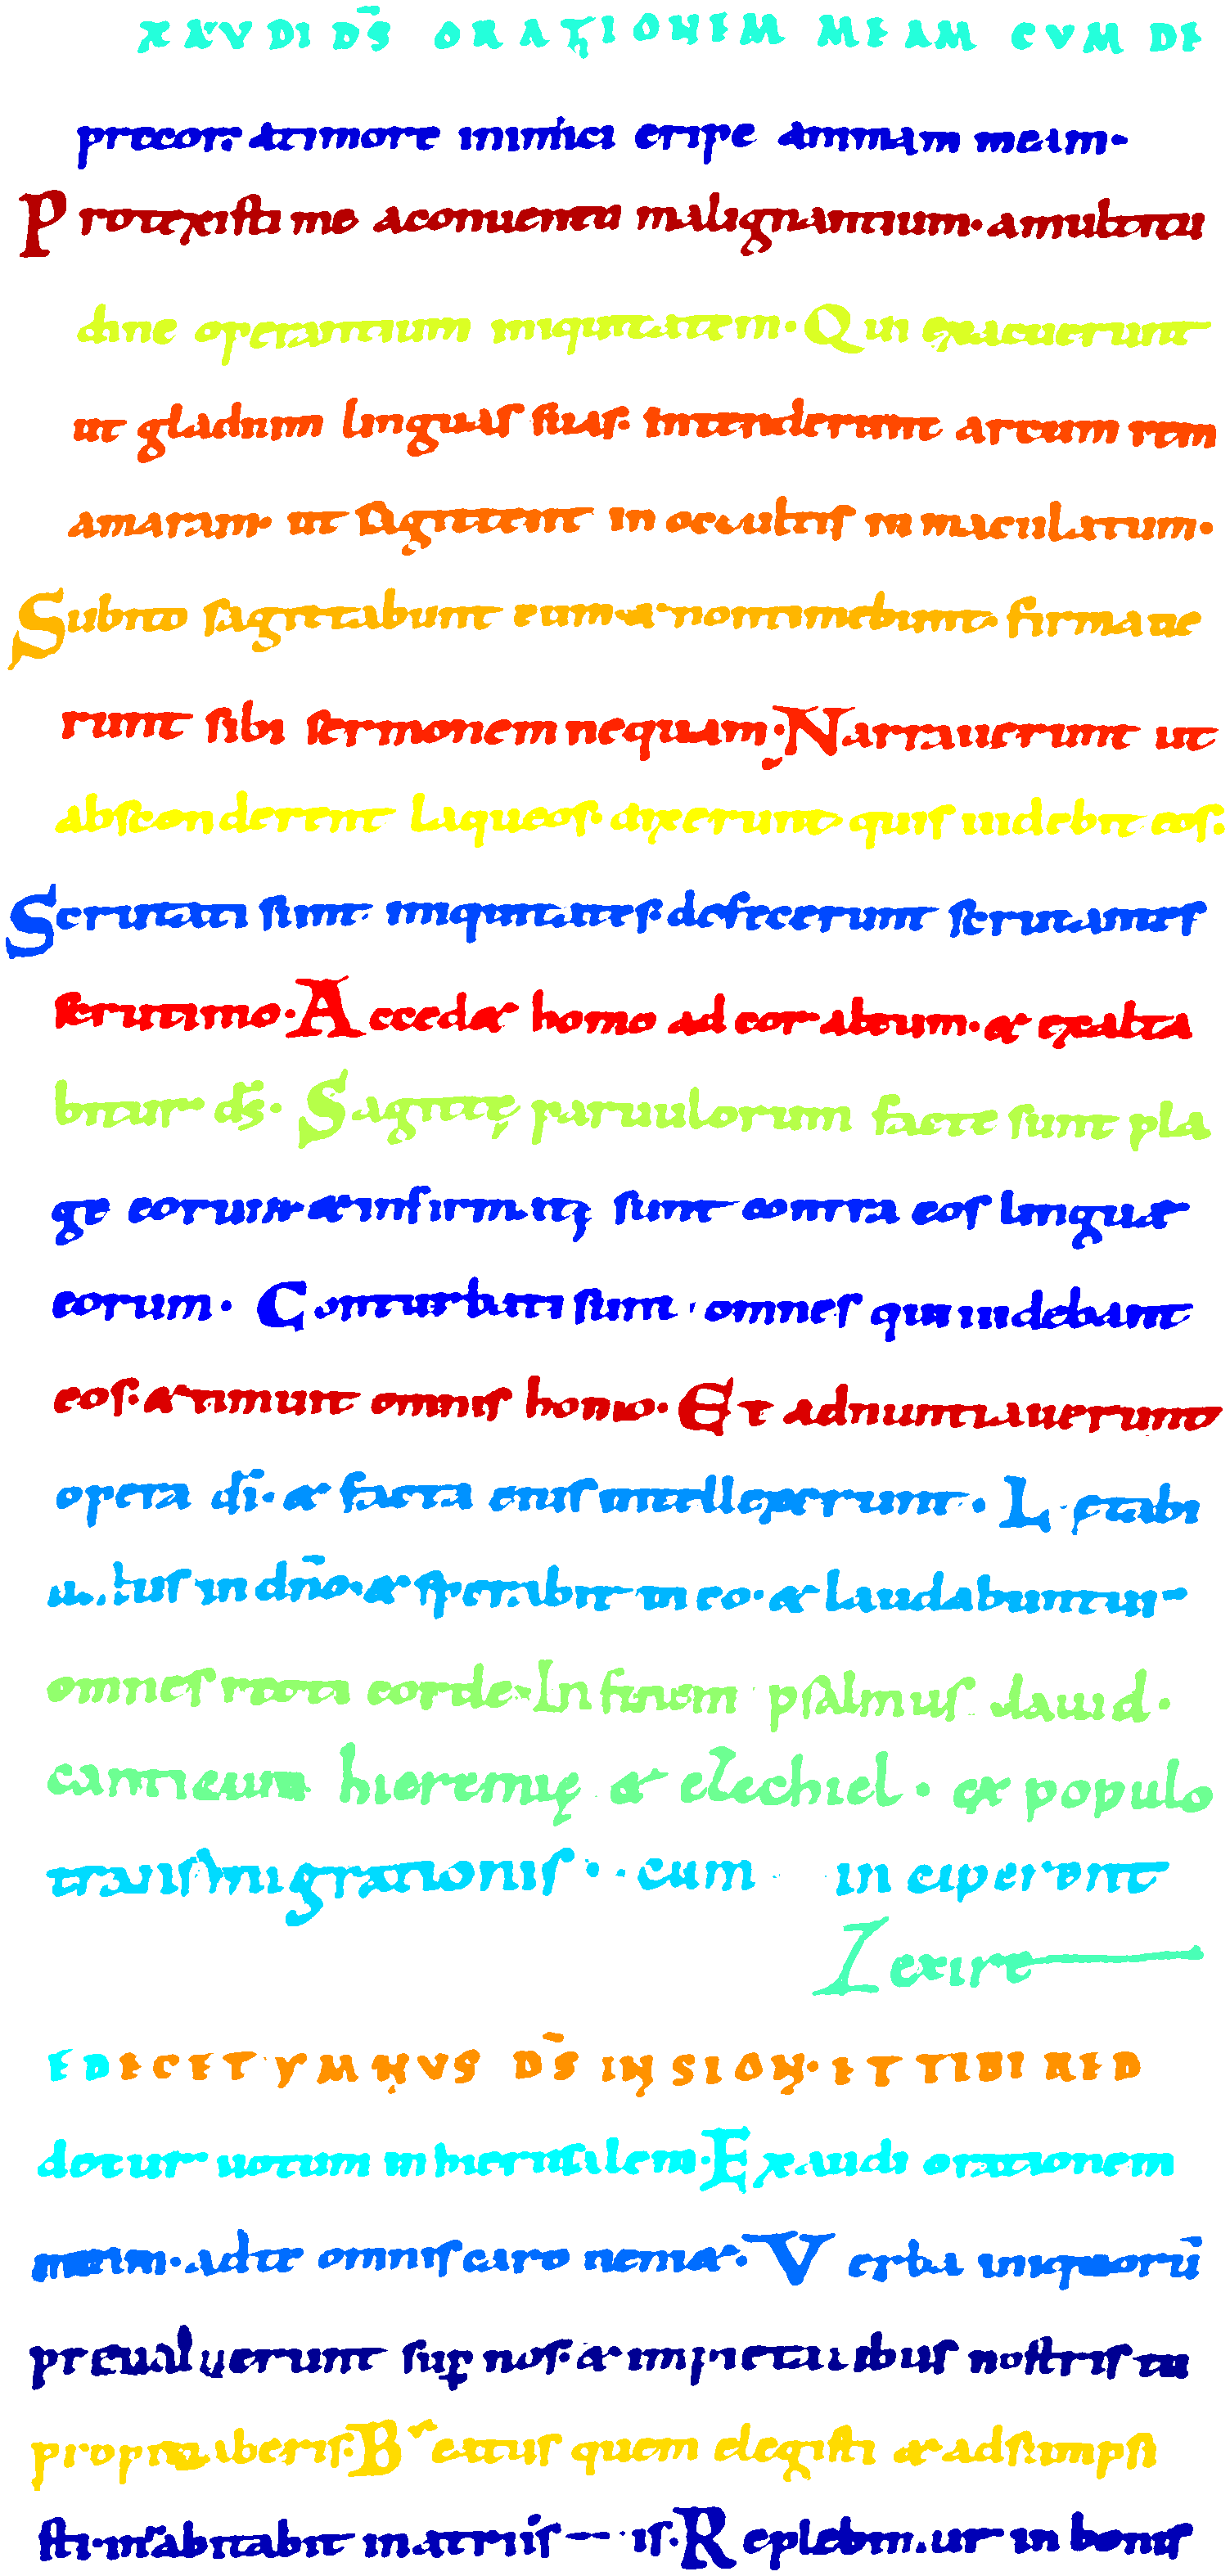 XAUDI DS̄ ORATIONEM MEAM CVM DE
precor. atimore inimici eripe animam meam.
Protexisti me aconuentu malignantium. amultitu
dine operantium iniquitatem. Qui exacuerunt
ut gladium linguas suas. intenderunt arcum rem
amaram. ut sagittent in occultis inmaculatum.
Subito sagittabunt eum & nontimebunt. firmaue
runt sibi sermonem nequam. Narrauerunt ut
absconderent laqueos. dixerunt quis uidebit eos.
Scrutati sunt iniquitates. defecerunt scrutantes
scrutinio. Acced& homo ad cor altum. & exalta
bitur ds̄. Sagittę paruulorum facte sunt pla
ge eorum & infirmatę sunt contra eos linguae
eorum. Conturbati sunt omnes qui uidebant
eos. & timuit omnis homo. Et adnuntiauerunt
opera dī. & facta eius intellexerunt. Lętabi
tur iustus in dnō. & sperabit in eo. & laudabuntur
omnes recti corde. In finem psalmus dauid.
canticum hieremię & ezechiel. ex populo
transmigrationis. cum inciperent
exire
E DECET YMNVS DS̄ IN SION. ET TIBI RED
detur uotum in hierusalem. Exaudi orationem
meam. adte omnis caro ueni&. Verba iniquorū
preualuerunt sup nos. & impietatibus nostris tu
propitiaberis. Beatus quem elegisti & adsumpsi
sti. inhabitabit inatriis tuis. Replebimur in bonis